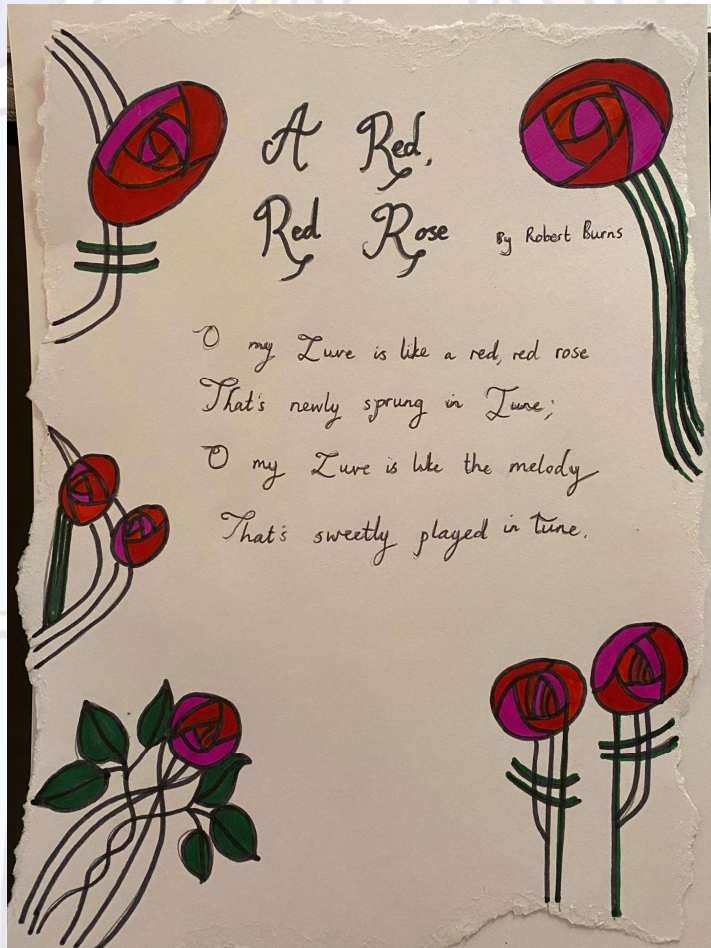 A Red,
Red Rose
By Robert Burns
O my Luve is like a red, red rose
That's newly sprung in June;
O my Luve is like the melody
That's sweetly played in tune.